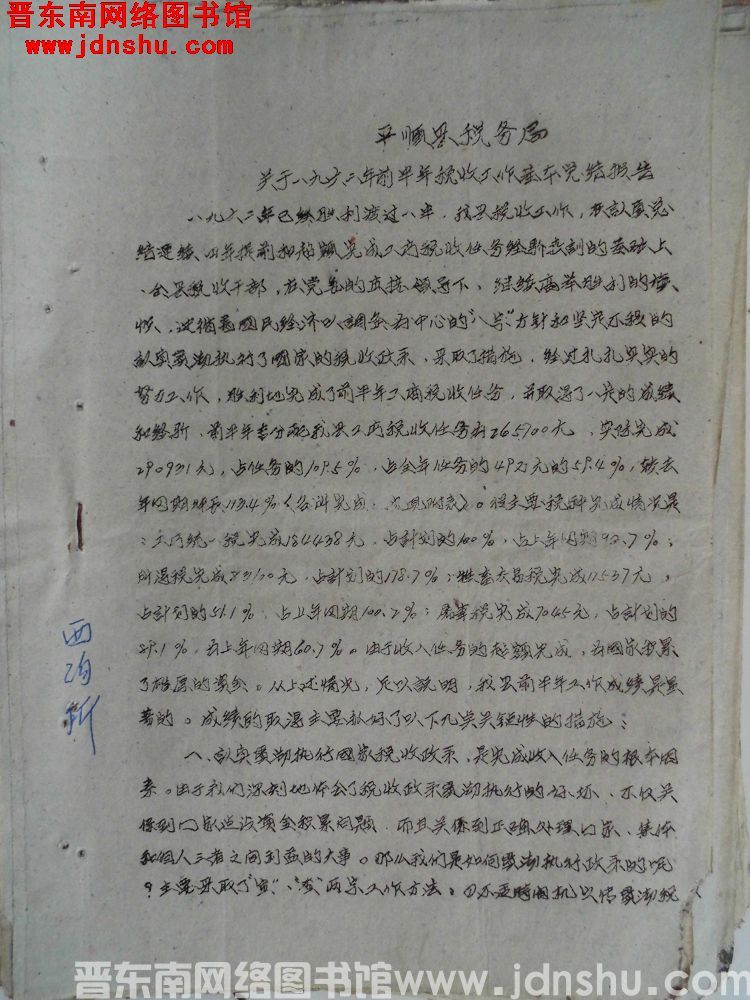 晋东南网络图书馆
www.jdnshu.com
平顺县税务局
关于一九六二年前半年税收工作基本总结报告
一九六二年已经胜利渡过一半，我县税收工作，在认真总
结连续四年提前和超额完成工商税收任务经验教训的基础上
、全县税收干部，在党委的直接领导下，继续高举胜利的
国民经济以调整为中心的“八字”方针和坚定不移的
认真贯彻执行了国家的税收政策，采取了措施，经过扎扎实实的
努力工作，胜利地完成了前半年工商税收任务，并取得了一定的成绩
和经验，前半年专分配我县工商税收任务为265700元，实际完成
290931元，占任务的109.5%，占全年任务的49万元的59.4%，较去
年同期增长113.4%。从主要税种完成情况是
：工商统一税完成184438元，占计划的100%，占上年同期92.7%；
所得税完成83100元，占计划的178.7%；牲畜交易税完成11537元，
占计划的51.1%，占上年同期100.2%；屠宰税完成7045元，占计划的
29.1%，占上年同期60.7%。由于收入任务的超额完成，为国家积累
了雄厚的资金。从上述情况，足以说明，我县前半年工作成绩是显
著的。成绩的取得主要抓好了以下几点关键性的措施：
一、认实贯彻执行国家税收政策，是完成收入任务的根本因
素。由于我们深刻地体会了税收政策贯彻执行的好、坏，不仅关
系到国家建设资金积累问题，而且关系到正确处理国家、集体
和个人三者之间利益的大事。那么我们是如何贯彻执行政策的呢
？主要采取了“宣”、“查”两字工作方法：
西沟新
晋东南网络图书馆www.jdnshu.com